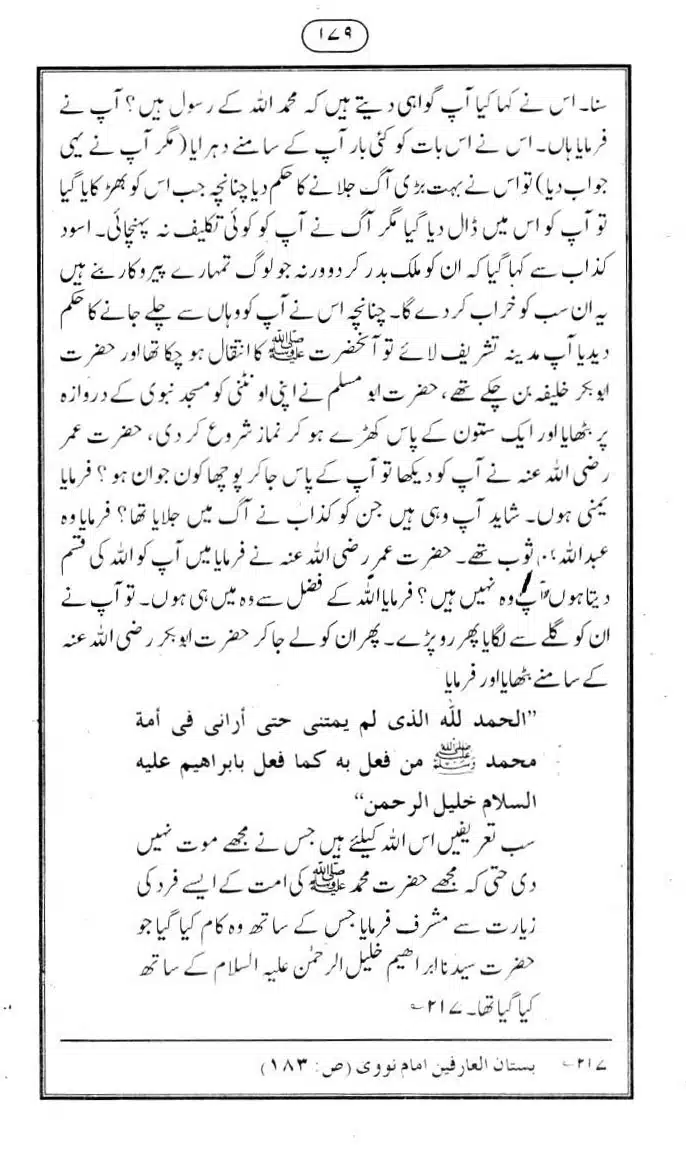 ۱۷۹
سنا۔ اس نے کہا کیا آپ گواہی دیتے ہیں کہ محمد اللہ کے رسول ہیں؟ آپ نے
فرمایا ہاں۔ اس نے اس بات کو کئی بار آپ کے سامنے دہرایا (مگر آپ نے یہی
جواب دیا) تو اس نے بہت بڑی آگ جلانے کا حکم دیا چنانچہ جب اس کو بھڑکایا گیا
تو آپ کو اس میں ڈال دیا گیا مگر آگ نے آپ کو کوئی تکلیف نہ پہنچائی۔ اسود
کذاب سے کہا گیا کہ ان کو ملک بدر کر دو ورنہ جو لوگ تمہارے پیروکار بنے ہیں
یہ ان سب کو خراب کر دے گا۔ چنانچہ اس نے آپ کو وہاں سے چلے جانے کا حکم
دیدیا آپ مدینہ تشریف لائے تو آنحضرت ﷺ کا انتقال ہو چکا تھا اور حضرت
ابوبکر خلیفہ بن چکے تھے، حضرت ابو مسلم نے اپنی اونٹنی کو مسجد نبوی کے دروازہ
پر بٹھایا اور ایک ستون کے پاس کھڑے ہو کر نماز شروع کر دی، حضرت عمر
رضی اللہ عنہ نے آپ کو دیکھا تو آپ کے پاس جا کر پوچھا کون جوان ہو؟ فرمایا
یمنی ہوں۔ شاید آپ وہی ہیں جن کو کذاب نے آگ میں جلایا تھا؟ فرمایا وہ
عبداللہ ثوب تھے۔ حضرت عمر رضی اللہ عنہ نے فرمایا میں آپ کو اللہ کی قسم
دیتا ہوں آپ وہ نہیں ہیں؟ فرمایا اللہ کے فضل سے وہ میں ہی ہوں۔ تو آپ نے
ان کو گلے سے لگایا پھر رو پڑے۔ پھر ان کو لے جا کر حضرت ابوبکر رضی اللہ عنہ
کے سامنے بٹھایا اور فرمایا
"الحمد لله الذی لم یمتنی حتی أرانی فی أمة
محمد ﷺ من فعل به کما فعل بابراهیم علیه
السلام خلیل الرحمن"
سب تعریفیں اس اللہ کیلئے ہیں جس نے مجھے موت نہیں
دی حتی کہ مجھے حضرت محمد ﷺ کی امت کے ایسے فرد کی
زیارت سے مشرف فرمایا جس کے ساتھ وہ کام کیا گیا جو
حضرت سیدنا ابراھیم خلیل الرحمٰن علیہ السلام کے ساتھ
کیا گیا تھا۔ ۲۱۷؎
۲۱۷؎ بستان العارفین امام نووی (ص: ۱۸۳)